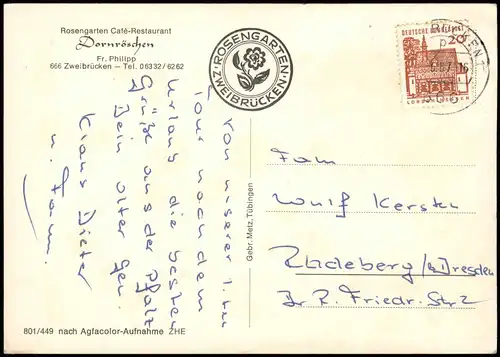 Rosengarten Café-Restaurant
Dornröschen
Fr. Philipp
666 Zweibrücken – Tel. 06332/6262
ROSENGARTEN
ZWEIBRÜCKEN
DEUTSCHE BUNDESPOST
20
Von unserer 1. ten
Tour nach dem
Urlaub die besten
Grüße aus der Pfalz
Dein alter
Klaus Dieter
u. Fam.
Gebr. Metz, Tübingen
Fam
Wulf Kersten
Radeberg Dresden
Dr. R. Friedr. Str 2
801/449 nach Agfacolor-Aufnahme ZHE